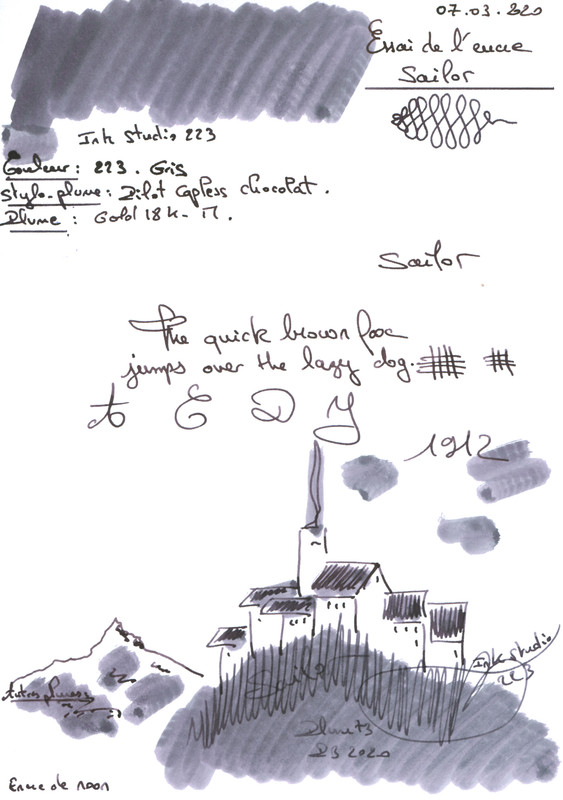 07.03.2020
Essai de l'encre
Sailor
Ink Studio 223
Couleur : 223. Gris
Stylo-plume : Pilot Capless chocolat.
Plume : Gold 18k - M.
Sailor
The quick brown fox
jumps over the lazy dog.
A E D Y
1912
Ink studio
223
Sailor
Autres plumes
Plume 73
D3 2020